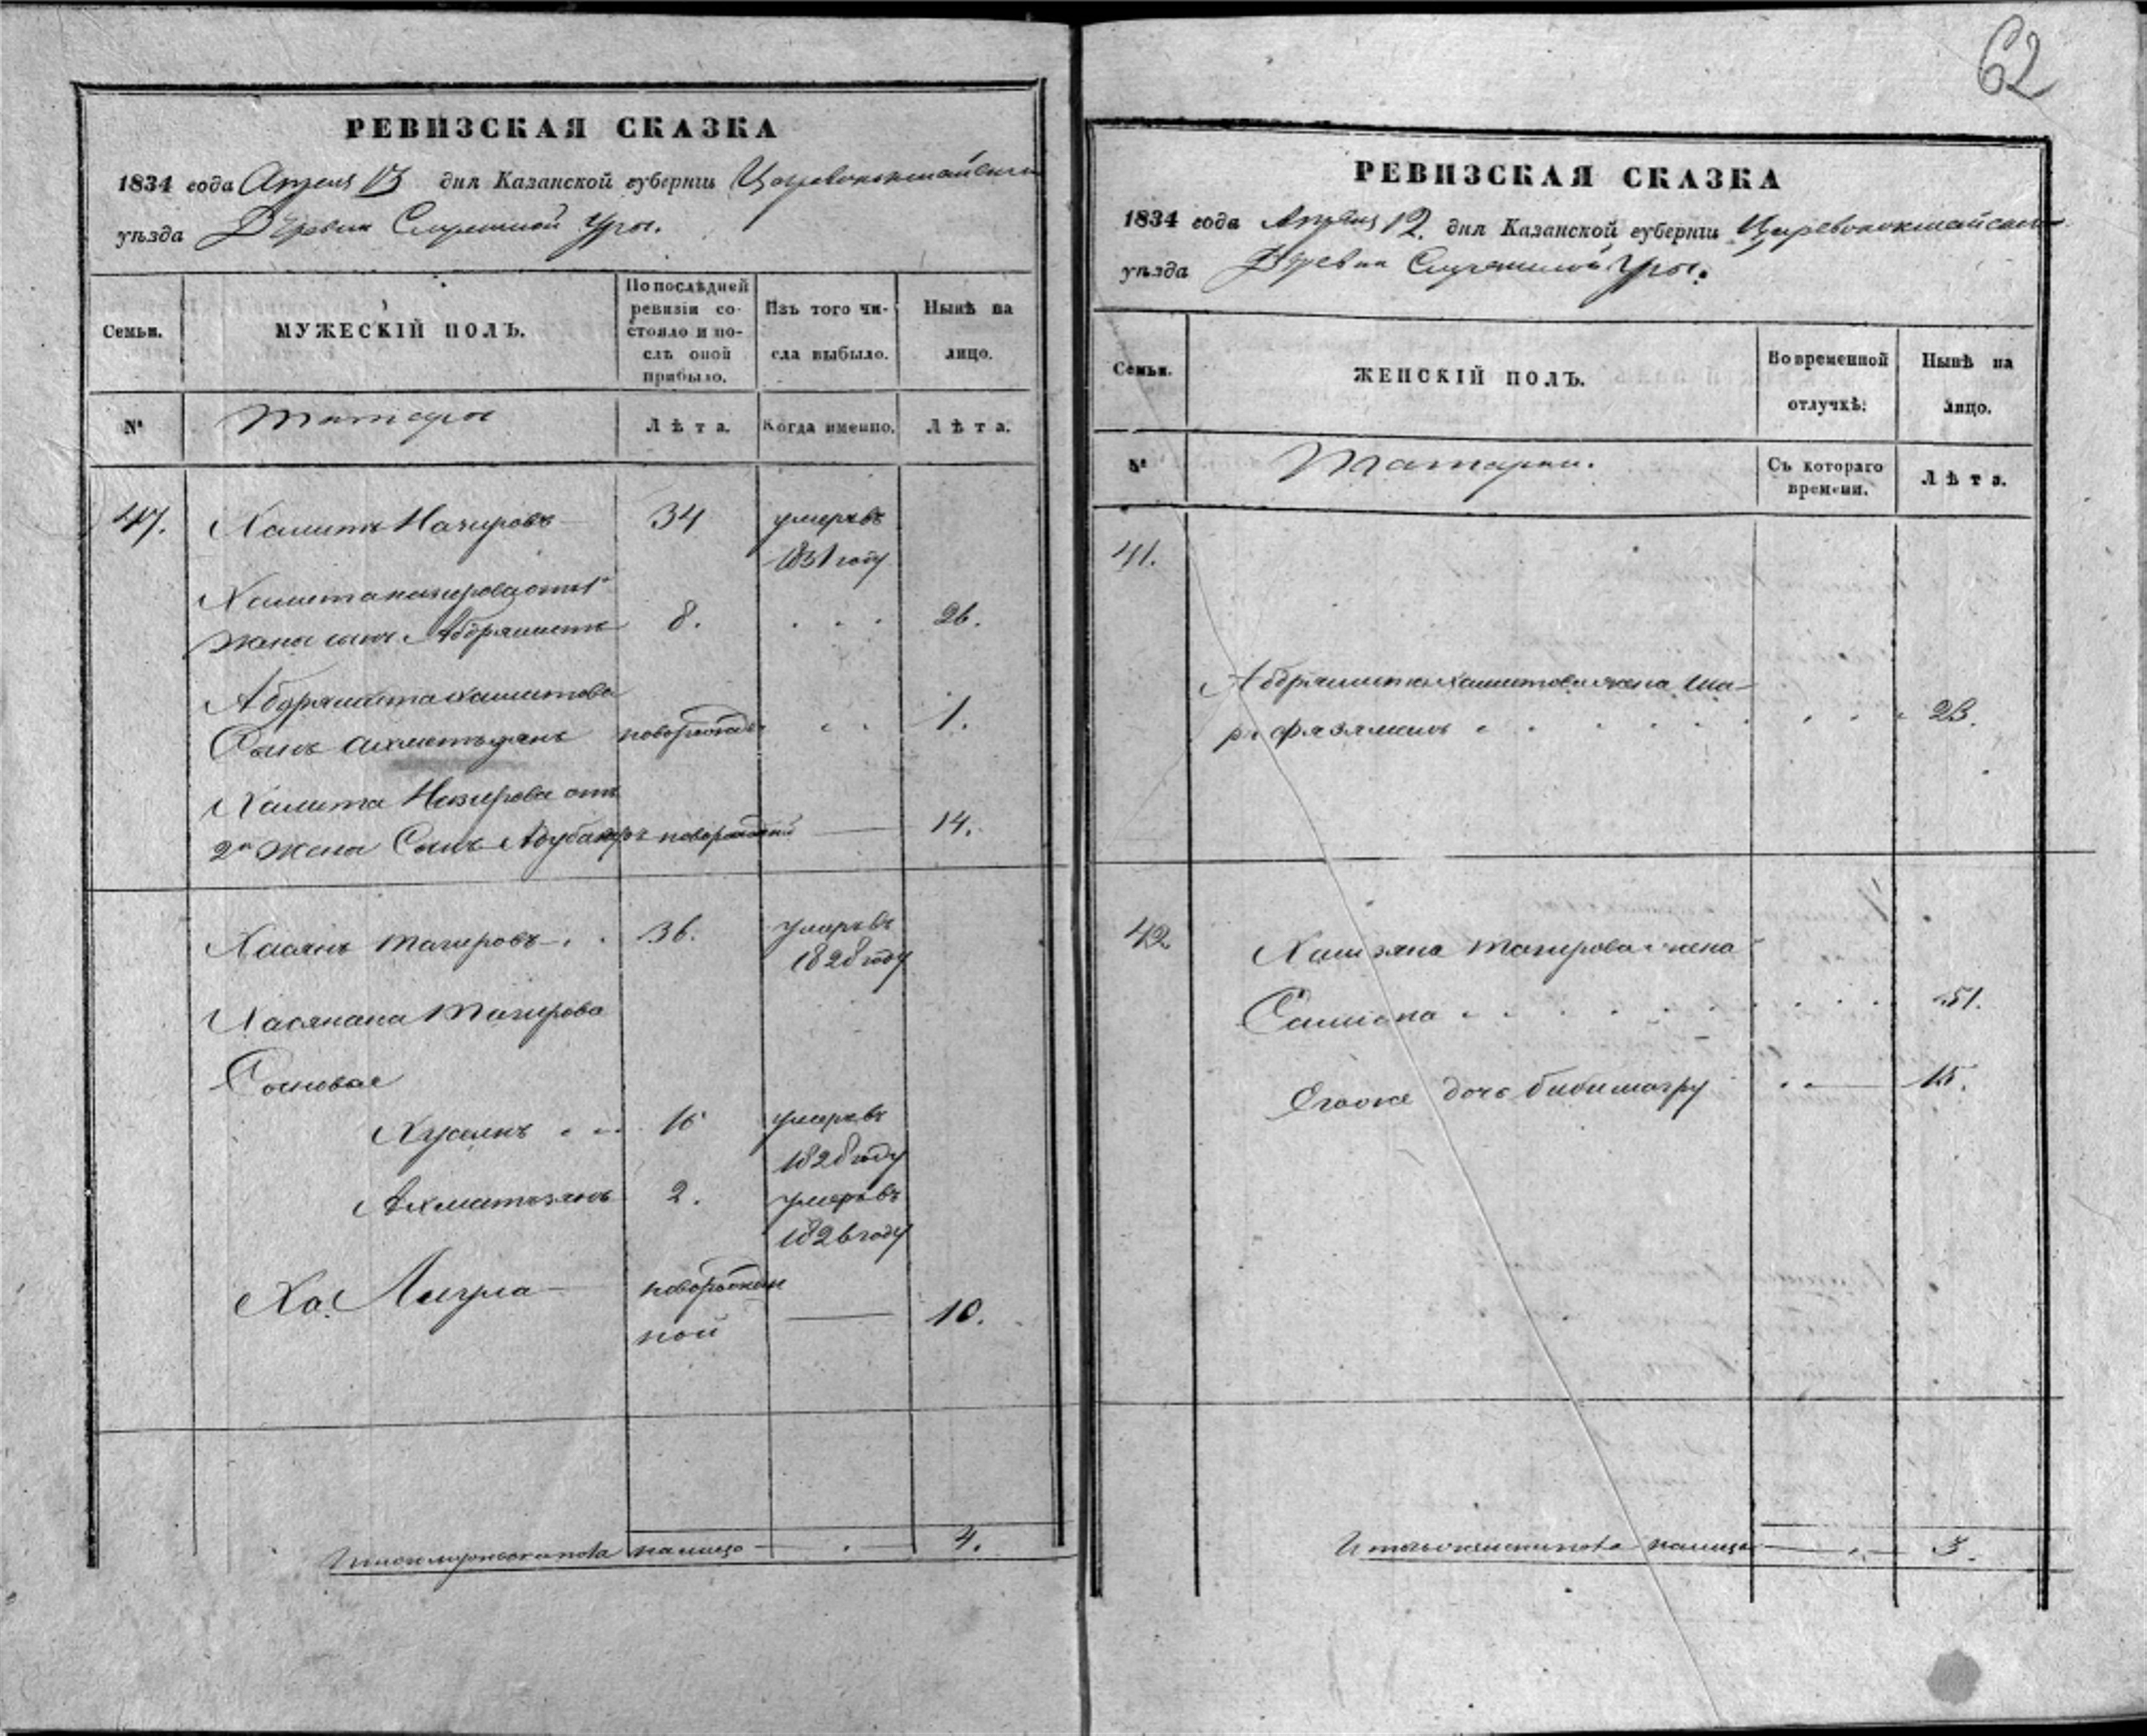 62
РЕВИЗСКАЯ СКАЗКА
1834 года Апреля 13 дня Казанской губерніи Царевококшайскаго
уѣзда Деревни Служилой Уры.
Семьи.
МУЖЕСКІЙ ПОЛЪ.
По послѣдней ревизіи состояло и послѣ оной прибыло.
Изъ того числа выбыло.
Нынѣ на лицо.
№
Татары
Лѣта.
Когда именно.
Лѣта.
41. Хамитъ Назировъ 34 умеръ въ
1831 году
Хамита Назирова отъ 1й
жены сынъ Абдрямитъ 8. . . . 26.
Абдрямита Хамитова
Сынъ Ахметьзянъ новорожден . . 1.
Хамита Назирова отъ
2й жены Сынъ Абубакиръ новорожденный — 14.
Хасянъ Тагировъ . . 36. умеръ въ
1828 году
Хасянана Тагирова
Сыновье
Хусаинъ . . . 16 умеръ въ
1828 году
Ахматьзянъ 2. умеръ въ
1826 году
новорожден
ной — 10.
Итого мужеска пола на лицо — . — 4.
РЕВИЗСКАЯ СКАЗКА
1834 года Апреля 12. дня Казанской губерніи Царевококшайскаго
уѣзда Деревни Служилой Уры.
Семьи.
ЖЕНСКІЙ ПОЛЪ.
Во временной отлучкѣ:
Нынѣ на лицо.
№
Татарки.
Съ котораго времени.
Лѣта.
41.
Абдрямита Хамитова жена Ша-
рафзямиль . . . . . . . . . 23.
42. Хасзяна Тагирова жена
. . . . . . . . . 51.
Егоже дочь Бибимагру . . — 15.
Итого женска пола на лицо — . — 3.